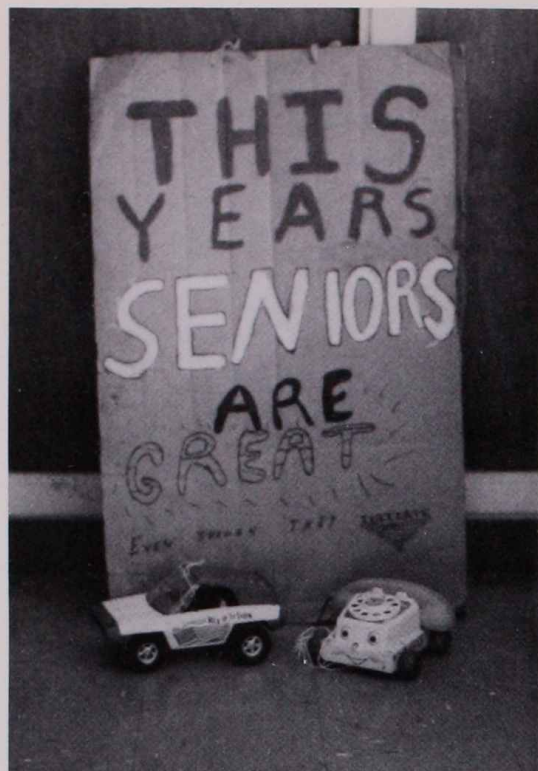 THIS
YEARS
SENIORS
ARE
GREAT
EVEN THOUGH THEY